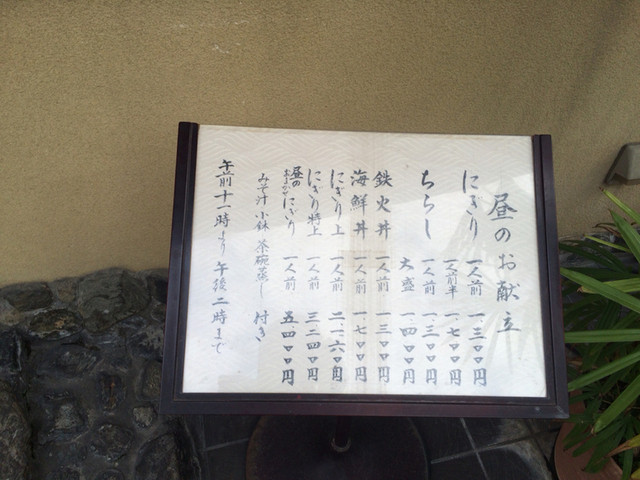 昼のお献立
にぎり 一人前 一、三〇〇円
一人前半 一、七〇〇円
ちらし 一人前 一、三〇〇円
大盛 一、四〇〇円
鉄火丼 一人前 一、三〇〇円
海鮮丼 一人前 一、七〇〇円
にぎり上 一人前 二、一六〇円
にぎり特上 一人前 三、二四〇円
昼のおまかせにぎり 一人前 五、四〇〇円
みそ汁 小鉢 茶碗蒸し 付き
午前十一時より 午後二時まで